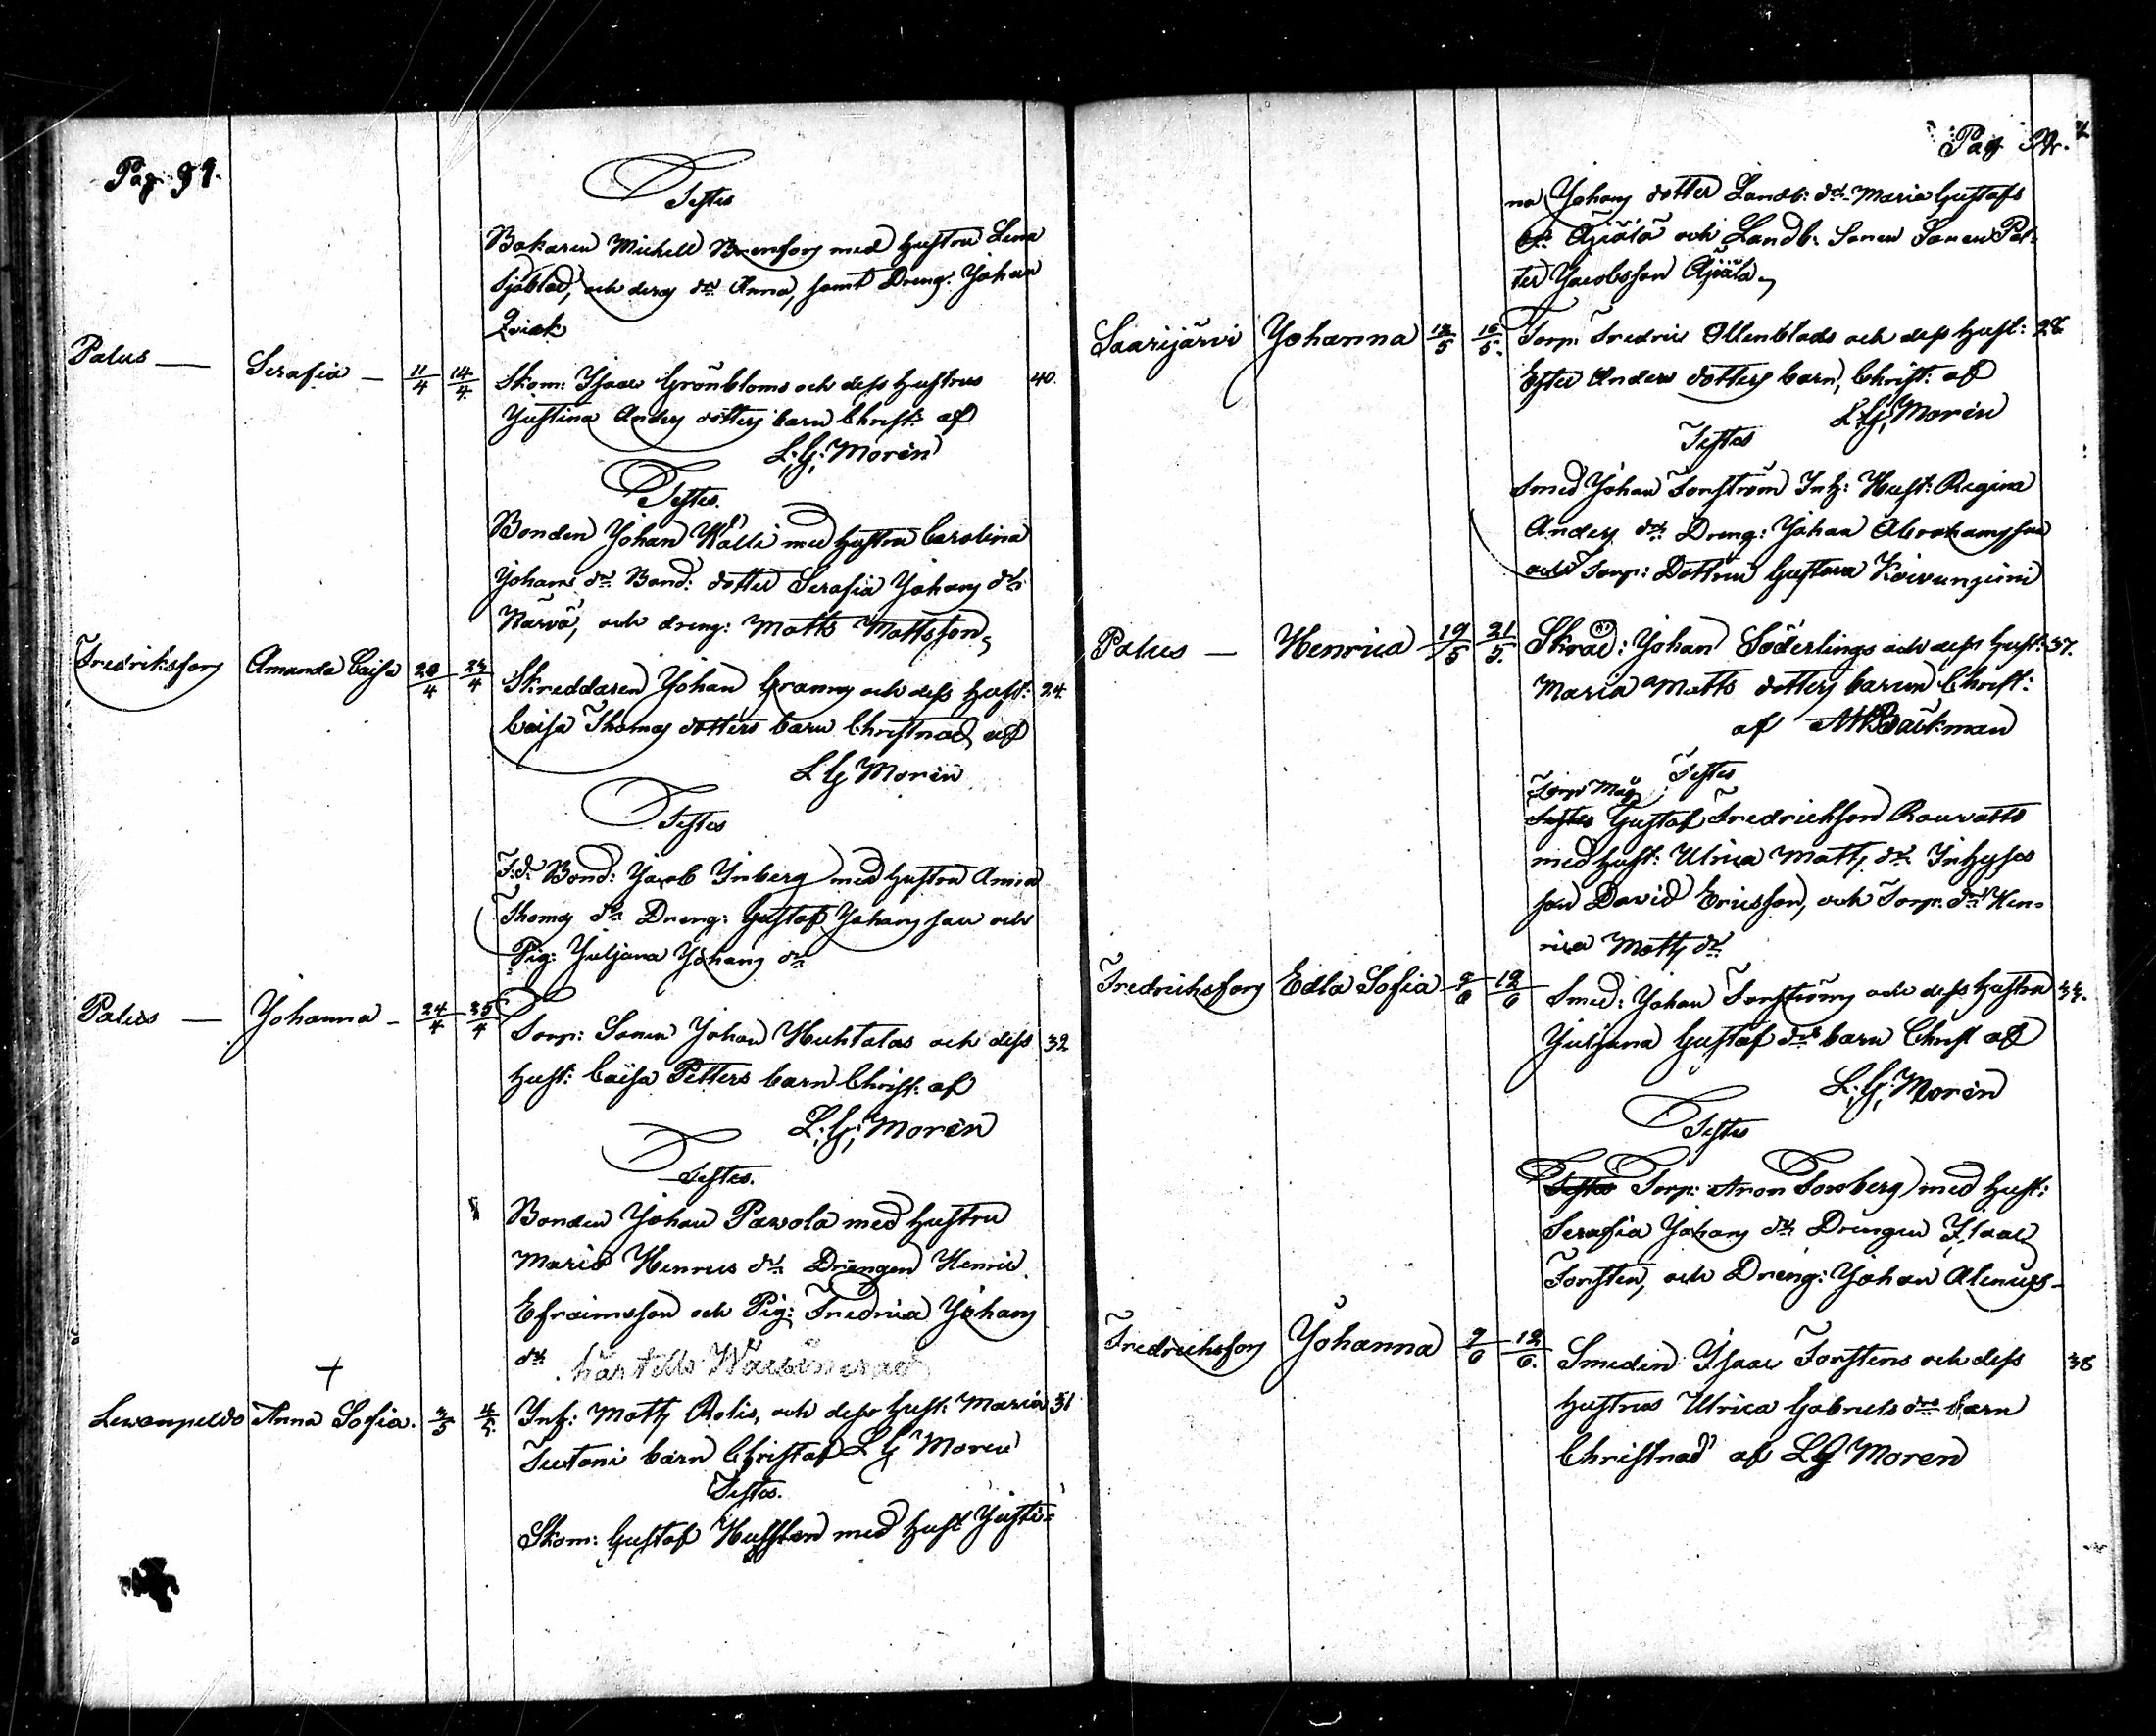 Pag: 91.
Testes
Bakaren Michell Bremsforss med hustru Lena
Sjöblad, och derass dr. Anna, samt Dreng: Johan
Qvick
Palus — Serafia — 11/4 14/4 Skom: Isaac Grönbloms och dess hustrus 40.
Justina Anders dotters barn Christ: af
L: G: Morén
Testes.
Bonden Johan Kálli med hustru Carolina
Johans dr. Bond: dotter Serafia Johans dr.
Närvä, och dreng: Matts Mattsson,
Fredriksfors Amanda Caisa 20/4 23/4 Skreddaren Johan Granns och dess Hust: 24.
Caisa Thomas dotters barn Christnad af
L G Morén
Testes
F: d: Bond: Jacob Inberg med hustru Anna
Thomas dr. Dreng: Gustaf Johansson och
Pig: Juljana Johans dr.
Palus — Johanna — 24/4 25/4 Torp: Sonen Johan Huhtalas och dess 32
hust: Caisa Petters barn Christ: af
L: G: Morén
Testes.
Bonden Johan Pawola med hustru
Maria Henrics dr. Drengen Henric
Efraimsson och Pig: Fredrica Johans
dr.
Lewanpeldo Anna Sofia. 3/5 4/5 Inh: Matts Rolis, och dess hust: Maria 31
barn Christ af L G Moren
Testes.
Skom: Gustaf med hust Justi=
Pag 92.
na Johans dotter Landb: dr. Maria Gustafs
dr. Äjälä och Landb: Sonen Sonen Pet-
ter Jacobsson Äjälä,
Saarijärvi Johanna 13/5 16/5. Torp: Fredric Ollenblads och dess Hust: 28
Ester Anders dotters barn, Christ: af
L: G: Morén
Testes
Smed Johan Forsström Inh: Hust: Regina
Anders dr. Dreng: Johan Abrahamsson
och Torp: Dottren Gustava Koivuniemi
Palus — Henrica 19/5 21/5. Skrad: Johan Söderlings och dess hust: 37.
Maria Matts dotters barn Christ:
af Backman
Testes
Torp Måg
Testes Gustaf Fredrichsson Rauvatts
med hust: Ulrica Matts dr. Inhyses
son David Ericsson, och Torp. dr. Hen-
rica Matts dr.
Fredrichsfors Edla Sofia 9/6 12/6 Smed: Johan Forsströms och dess hustru 33.
Juljana Gustaf drs barn Christ af
L: G: Morén
Testes
Testes Torp: Aron Forsberg med hust:
Serafia Johans dr. Drengen Isaac
Forsten, och Dreng: Johan Alenius-
Fredrichsfors Johanna 9/6 12/6. Smeden Isaac Forstens och dess 38
hustrus Ulrica Gabriels drs barn
Christnad af L G Moren